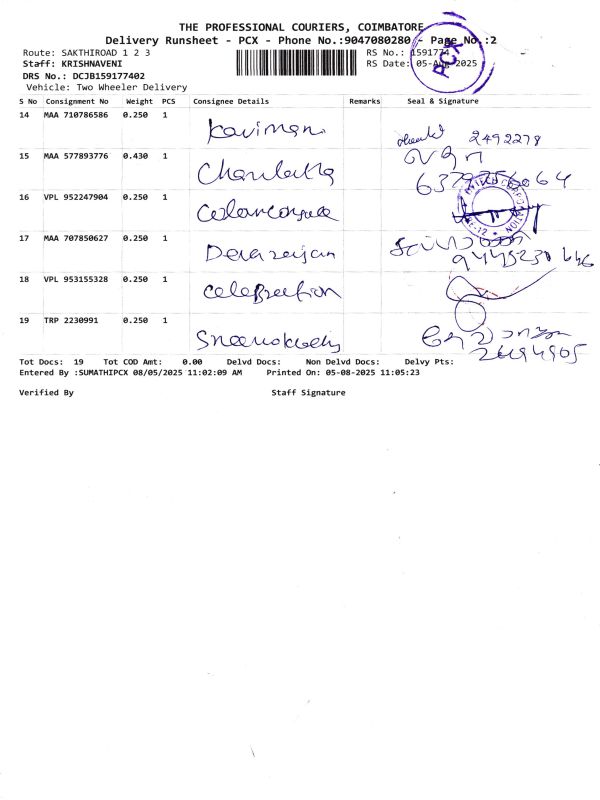 THE PROFESSIONAL COURIERS, COIMBATORE
Delivery Runsheet - PCX - Phone No.:9047080280 - Page No.:2
Route: SAKTHIROAD 1 2 3
RS No.: 1591774
Staff: KRISHNAVENI
RS Date: 05-Aug-2025
PCX
DRS No.: DCJB159177402
Vehicle: Two Wheeler Delivery
S No Consignment No Weight PCS Consignee Details Remarks Seal & Signature
14 MAA 710786586 0.250 1 Kaviman 2492278
15 MAA 577893776 0.430 1
16 VPL 952247904 0.250 1
17 MAA 707850627 0.250 1
18 VPL 953155328 0.250 1 celebration
19 TRP 2230991 0.250 1
Tot Docs: 19 Tot COD Amt: 0.00 Delvd Docs: Non Delvd Docs: Delvy Pts:
Entered By :SUMATHIPCX 08/05/2025 11:02:09 AM Printed On: 05-08-2025 11:05:23
Verified By Staff Signature